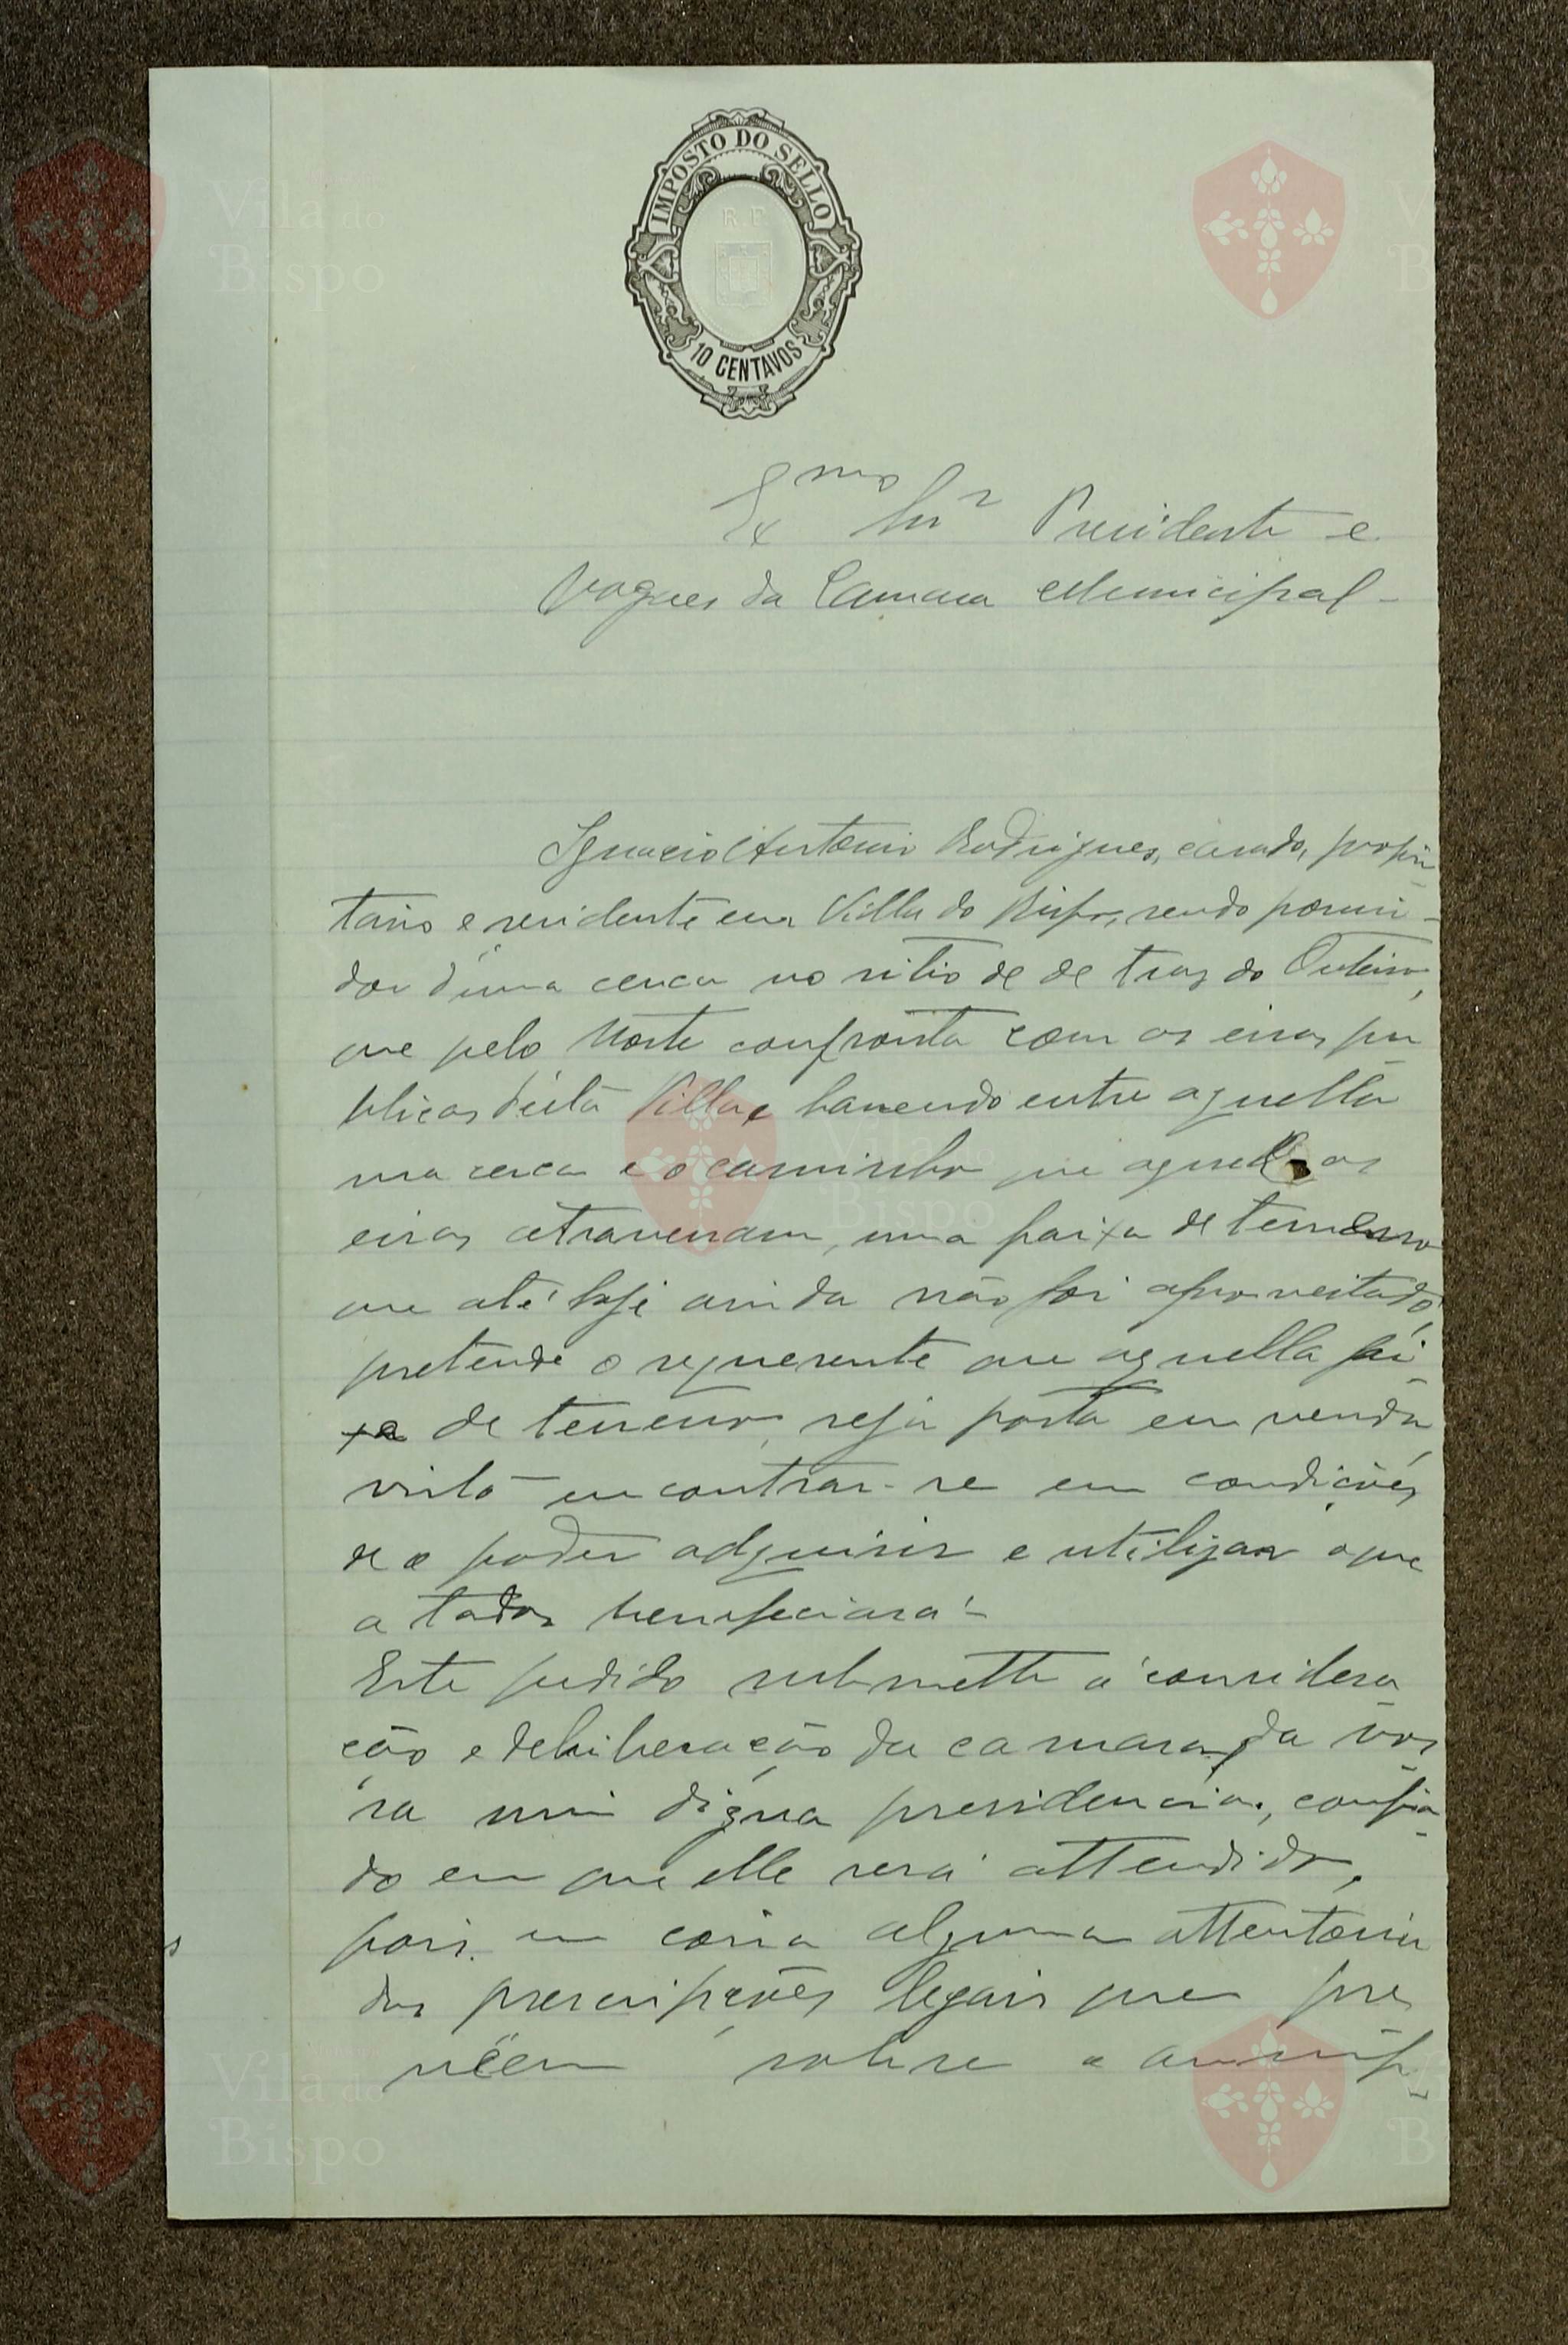 IMPOSTO DO SELLO
R P
10 CENTAVOS
Exmo Snr Presidente e
Vogaes da Camara Municipal -
Ignacio Antonio Rodrigues, casado, proprie
tario e residente em Villa do Bispo, sendo possui-
dor d'uma cerca no sitio de de traz do Outeiro,
que pelo Norte confronta com as eiras pu
blicas d'esta Villa, havendo entre aquella
ma cerca e o caminho que aquellas
eiras atravessam, uma faixa de terreno
que até hoje ainda não foi aproveitado,
pretende o requerente que aquella fai-
xa de terreno, seja posta em venda,
visto encontrar-se em condições
de o poder adquirir e utilizar o que
a todos beneficiará -
Este pedido submette á considera
ção e deliberação da camara da vos
sa mui digna presidencia, confia-
do em que elle será attendido,
pois em coisa alguma attentoria
das prescripções legais que
sobre o
Vila do Bispo